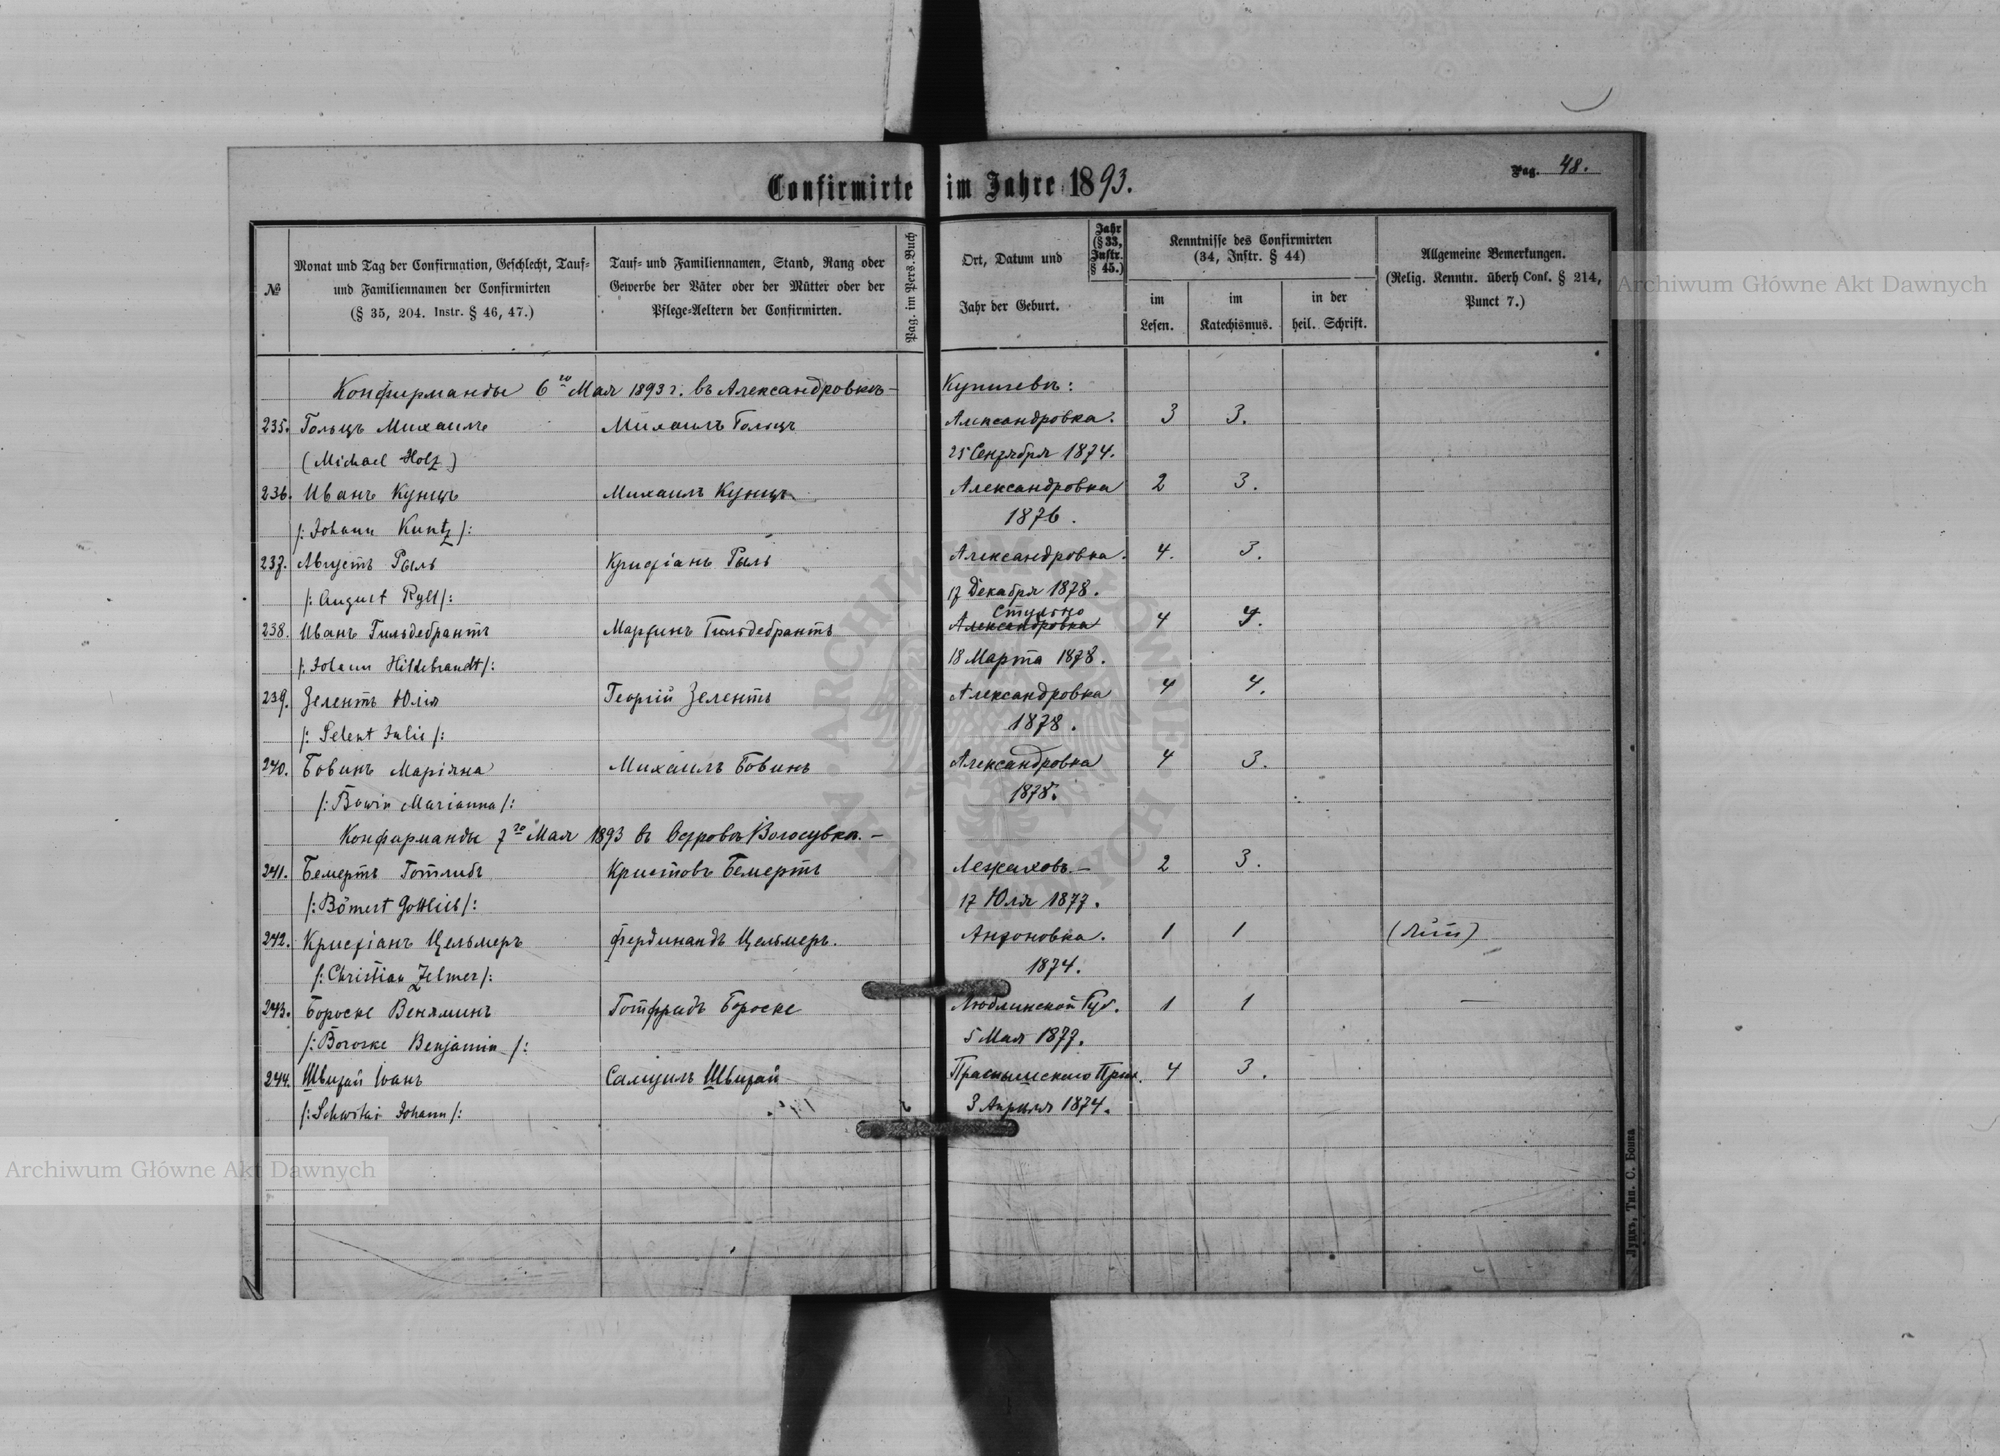 Confirmirte im Jahre 1893.
Pag. 48.
№
Monat und Tag der Confirmation, Geschlecht, Tauf-
und Familiennamen der Confirmirten
(§ 35, 204. Instr. § 46, 47.)
Tauf- und Familiennamen, Stand, Rang oder
Gewerbe der Väter oder der Mütter oder der
Pflege-Aeltern der Confirmirten.
Pag. im Pers.-Buch
Ort, Datum und
Jahr der Geburt.
Jahr
(§ 33,
Instr.
§ 45.)
Kenntnisse des Confirmirten
(34, Instr. § 44)
im
Lesen.
im
Katechismus.
in der
heil. Schrift.
Allgemeine Bemerkungen.
(Relig. Kenntn. überh Conf. § 214,
Punct 7.)
Конфирманды 6го Мая 1893 г. въ Александровкѣ- Купичевѣ:
235. Гольцъ Михаилъ Михаилъ Гольцъ Александровка. 3 3.
(Michael Holz) 25 Сентября 1874.
236. Иванъ Кунцъ Михаилъ Кунцъ Александровка 2 3.
/: Johann Kuntz /: 1876.
237. Августъ Рыль Кристіанъ Рыль Александровка. 4. 3.
/: August Ryll /: 17 Декабря 1878.
Стульно
238. Иванъ Гильдебрантъ Мартинъ Гильдебрантъ Александровка 4 4.
/: Johann Hildebrandt /: 18 Марта 1878.
239. Зелентъ Юлія Георгій Зелентъ Александровка 4 4.
/: Selent Julie /: 1878.
240. Бовинъ Маріяна Михаилъ Бовинъ Александровка 4 3.
/: Bowin Marianna /: 1878.
Конфирманды 7го Мая 1893 въ
241. Бемертъ Готлибъ Кристовъ Бемертъ Лежаховъ.- 2 3.
/: Bömert Gottlieb /: 17 Юля 1877.
242. Кристіанъ Цельмеръ Фердинандъ Цельмеръ. Антоновка. 1 1
/: Christian Zelmer /: 1874.
243. Бороске Веняминъ Готфридъ Бороске Люблинской Губ. 1 1 —
/: Boroske Benjamin /: 5 Мая 1877.
244. Швитай Іоанъ Самуилъ Швитай Праснышскаго Прих. 4 3.
/: Schwitai Johann /: 3 Апрѣля 1874.
Луцкъ, Тип. С. Бонка
Archiwum Główne Akt Dawnych
Archiwum Główne Akt Dawnych
ARCHIWUM GŁÓWNE AKT DAWNYCH